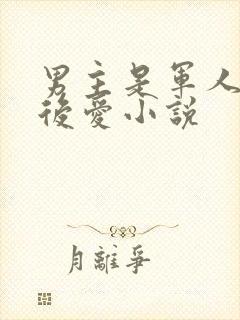 男主是軍人
後愛小說
月離爭